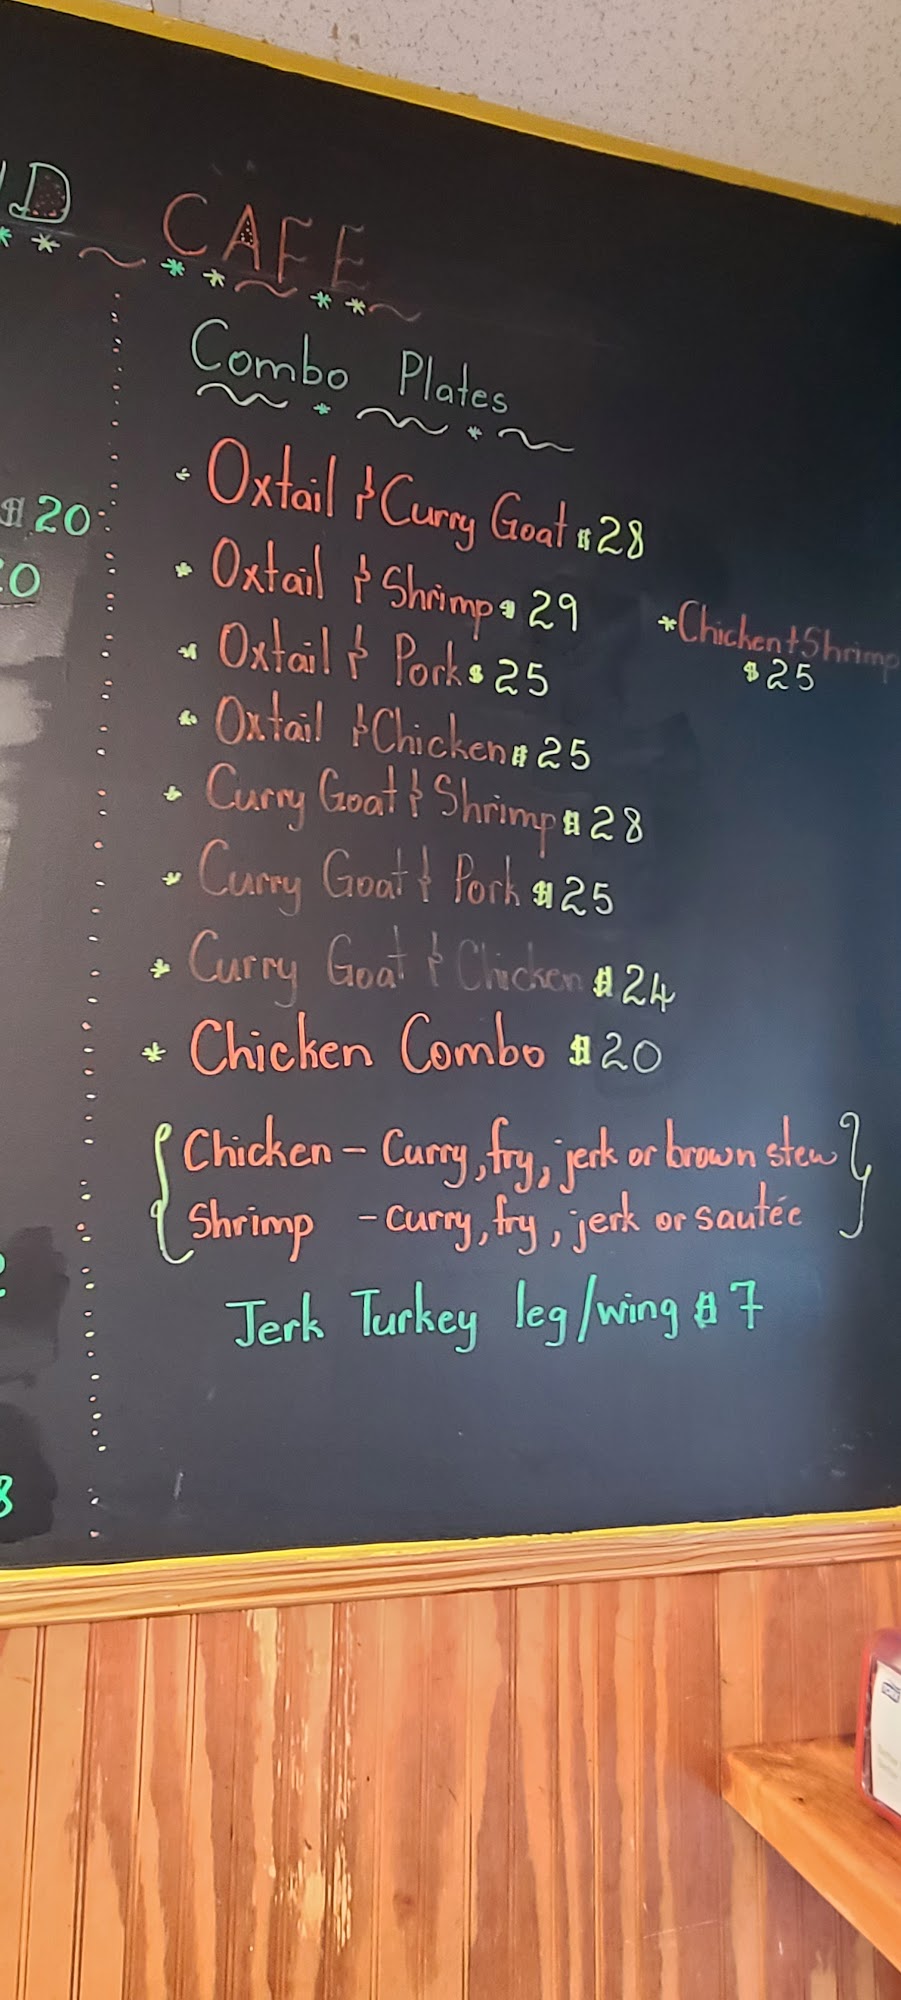 D CAFE
Combo Plates
* Oxtail & Curry Goat $28
$20
* Oxtail & Shrimp $29
* Chicken + Shrimp
$25
* Oxtail & Pork $25
* Oxtail & Chicken $25
* Curry Goat & Shrimp $28
* Curry Goat & Pork $25
* Curry Goat & Chicken $24
* Chicken Combo $20
{Chicken - Curry, fry, jerk or brown stew}
{Shrimp - curry, fry, jerk or sautée}
Jerk Turkey leg/wing $7